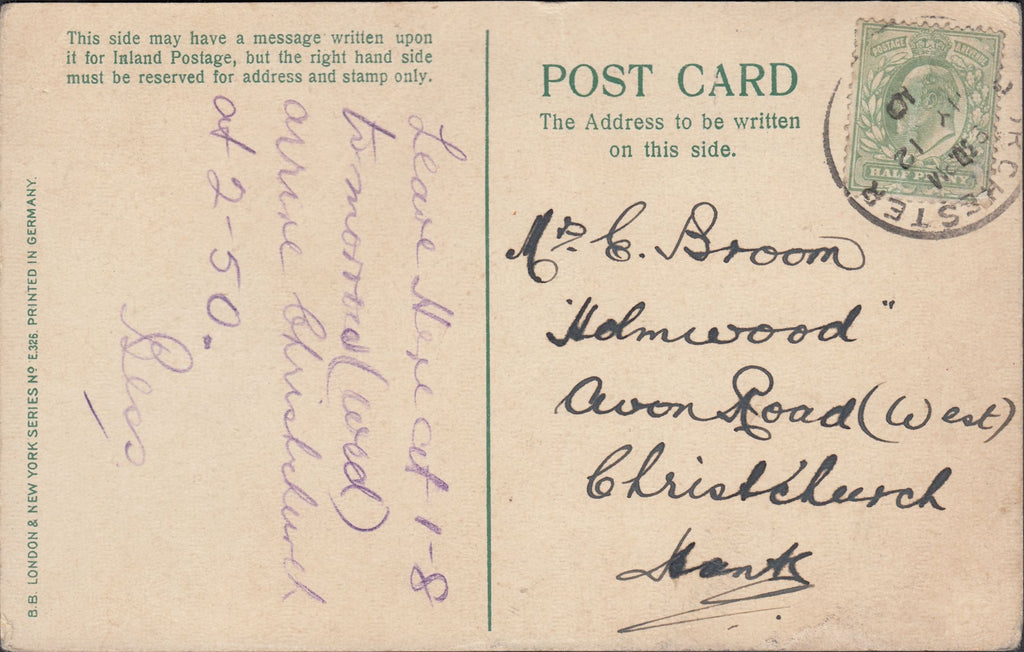 This side may have a message written upon
it for Inland Postage, but the right hand side
must be reserved for address and stamp only.
Leave Here at 1-8
tomorrow (Wed)
arrive Christchurch
at 2-50.
Bess
B.B. LONDON & NEW YORK SERIES Nº E.326. PRINTED IN GERMANY.
POST CARD
The Address to be written
on this side.
Mr. E. Broom
"Holmwood"
Avon Road (West)
Christchurch
Hants
POSTAGE
HALF PENNY
DORCHESTER
12
10